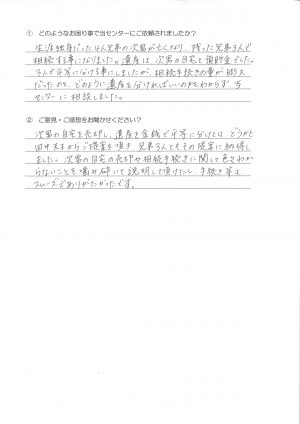 ① どのようなお困り事で当センターにご依頼されましたか？
生涯独身だった4人兄弟の次男が亡くなり、残った兄弟3人で
相続する事になりました。遺産は次男の自宅と預貯金でした。
3人で平等に分ける事にしましたが、相続手続きの事が初
だったので、どのように遺産を分ければいいのかわからず当
センターに相談しました。
② ご意見・ご感想をお聞かせください？
次男の自宅を売却し、遺産を金銭で平等に分けては、どうかと
田中先生からご提案を頂き、兄弟3人ともその提案に納得し
ました。次男の自宅の売却や相続手続きに関して色々わか
らないことを噛み砕いて説明して頂けたし、手続き等も
スムーズでありがたかったです。